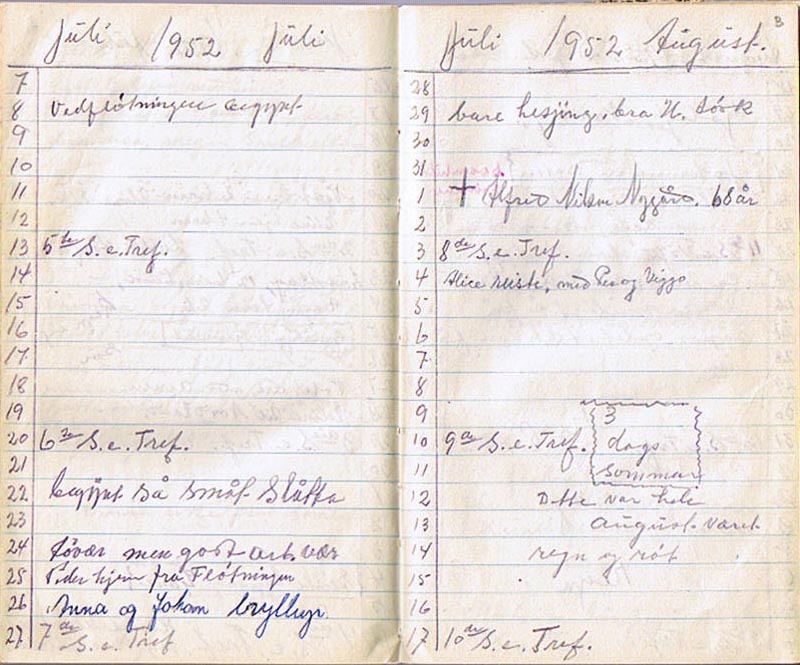 Juli 1952 Juli
7
8 Vedfløtningen begynt
9
10
11
12
13 5te S. e. Tref.
14
15
16
17
18
19
20 6te S. e. Tref.
21
22 begynt så smot Slåtta
23
24 godt arb. vær
25 Peder hjem fra Fløtningen
26 Anna og Johan bryllup
27 7de S. e. Tref
3
Juli 1952 August.
28
29 bare hesjing, bra H. tørk
30
31
1 † Alfred Nilsen Nygård. 68 år
2
3 8de S. e. Tref.
4 Alice reiste, med Per og Viggo
5
6
7
8
9 3
10 9de S. e. Tref. dags
11 sommar
12 Dette var hele
13 august-været
14 regn og
15
16
17 10de S. e. Tref.